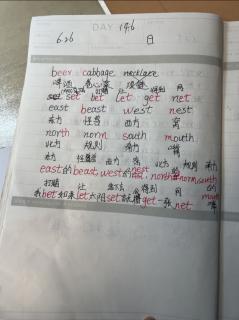 DAY 146
6.26 日
beer cabbage necklace
啤酒 卷心菜 项链
set bet let get net
打赌 让 得到 网
east beast west nest
东方 怪兽 西方 窝
north norm south mouth
北方 规则 南方 嘴
东方 怪兽 西方 窝 北方 规则 南方
east的beast,west的nest,north norm,south
打赌 让 落下 得到 网 的mouth
我bet如果let太阳set就能get一张net 嘴